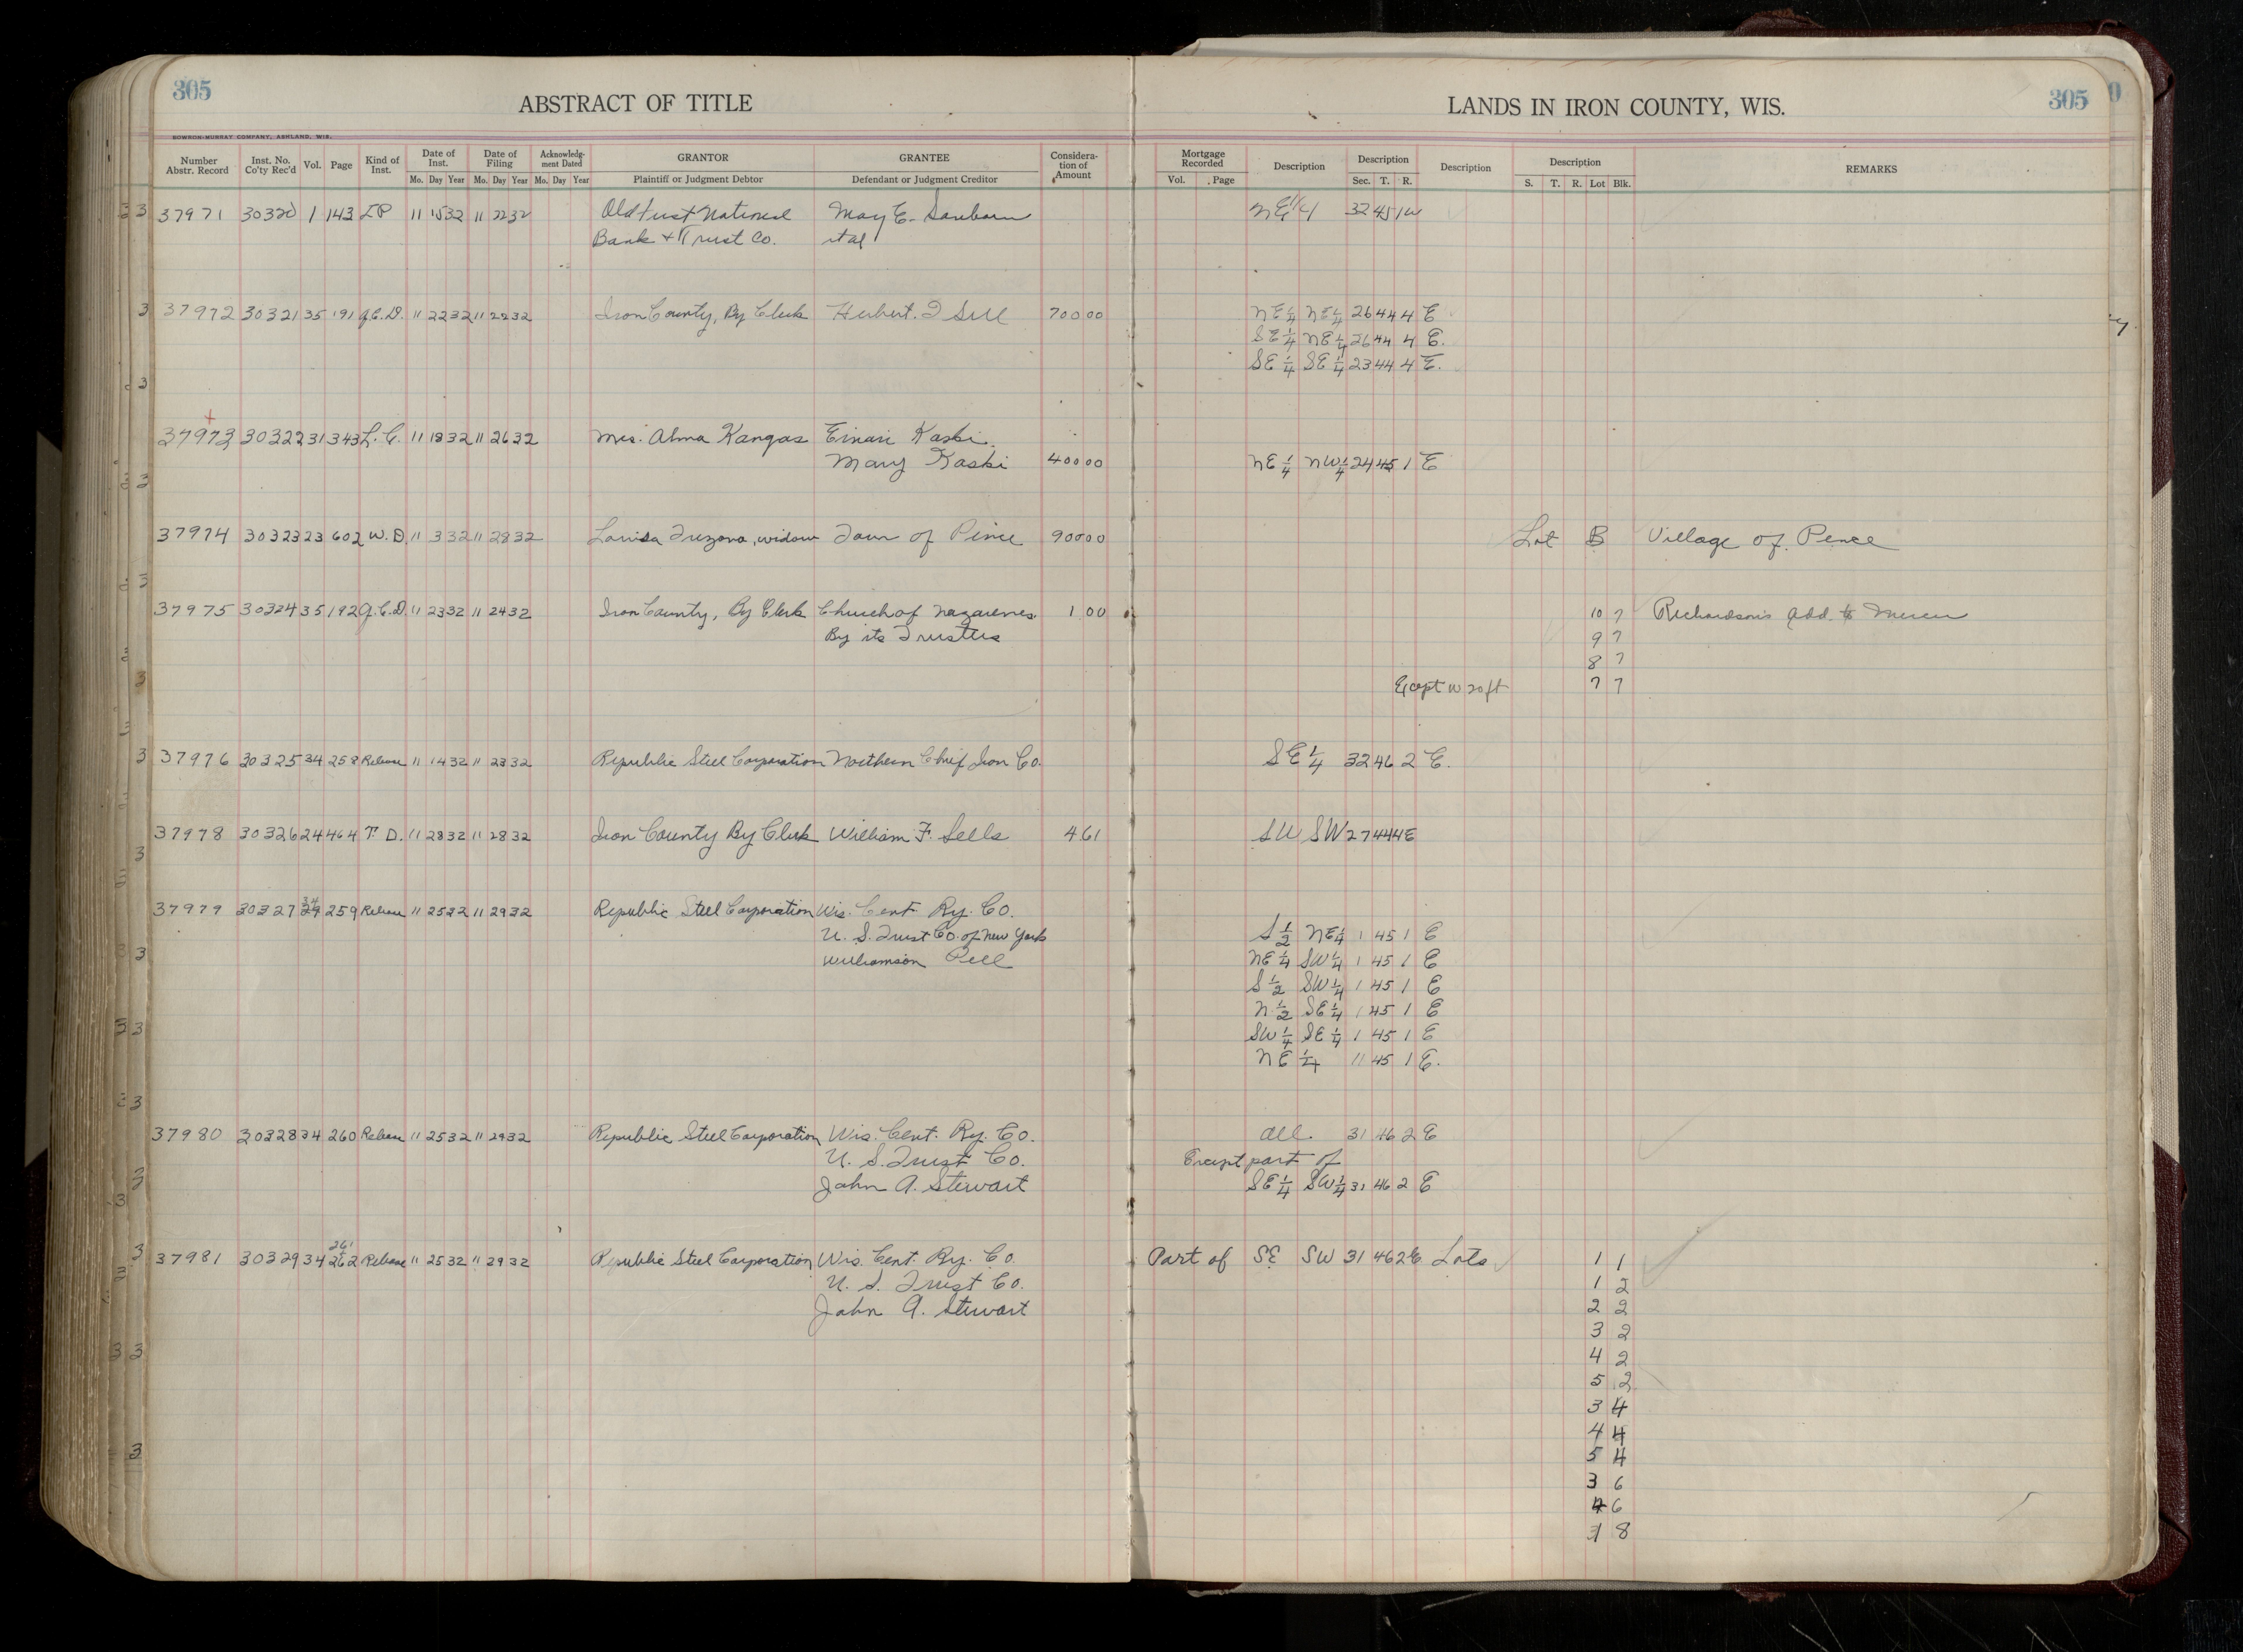 305
ABSTRACT OF TITLE
LANDS IN IRON COUNTY, WIS.
305
BOWRON-MURRAY COMPANY, ASHLAND, WIS.
Number Abstr. Record Inst. No. Co'ty Rec'd Vol. Page Kind of Inst. Date of Inst. Mo. Day Year Date of Filing Mo. Day Year Acknowledgment Dated Mo. Day Year GRANTOR Plaintiff or Judgment Debtor GRANTEE Defendant or Judgment Creditor Consideration of Amount Mortgage Recorded Vol. Page Description Description Sec. T. R. Description Description S. T. R. Lot Blk. REMARKS
37971 30320 1 143 LP 11 15 32 11 22 32 Old First National May E. Sanborn NE 1/4 32 45 1W
Bank & Trust Co. et al
37972 30321 35 191 Q.C.D. 11 22 32 11 22 32 Iron County, By Clerk Hubert. 700 00 NE 1/4 NE 1/4 26 44 4 E
SE 1/4 NE 1/4 26 44 4 E.
SE 1/4 SE 1/4 23 44 4 E.
37973 30322 31 343 L.C. 11 18 32 11 26 32 Mrs. Alma Kangas Einari Kaski.
Mary Kaski 400 00 NE 1/4 NW 1/4 24 45 1 E
37974 30323 23 602 W.D. 11 3 32 11 28 32 Louisa Trezona, widow Town of Pence 900 00 Lot B Village of Pence
37975 30324 35 192 Q.C.D. 11 23 32 11 24 32 Iron County, By Clerk Church of Nazarenes 1 00 10 7 Richardson's Add. to Mercer
By its Trustees 9 7
8 7
Except W 20 ft 7 7
37976 30325 34 258 Release 11 14 32 11 23 32 Republic Steel Corporation Northern Chief Iron Co. SE 1/4 32 46 2 E.
37978 30326 24 464 T.D. 11 28 32 11 28 32 Iron County By Clerk William F. Sells 4 61 SW SW 27 44 4E
37979 30327 34 259 Release 11 25 32 11 29 32 Republic Steel Corporation Wis. Cent. Ry. Co.
U. S. Trust Co. of New York S 1/2 NE 1/4 1 45 1 E
Williamson Pell NE 1/4 SW 1/4 1 45 1 E
S 1/2 SW 1/4 1 45 1 E
N 1/2 SE 1/4 1 45 1 E
SW 1/4 SE 1/4 1 45 1 E
NE 1/4 11 45 1 E.
37980 30328 34 260 Release 11 25 32 11 29 32 Republic Steel Corporation Wis. Cent. Ry. Co. All. 31 46 2 E
U. S. Trust Co. Except part of
John A. Stewart SE 1/4 SW 1/4 31 46 2 E
261
37981 30329 34 262 Release 11 25 32 11 29 32 Republic Steel Corporation Wis. Cent. Ry. Co. Part of SE SW 31 46 2E Lots 1 1
U. S. Trust Co. 1 2
John A. Stewart 2 2
3 2
4 2
5 2
3 4
4 4
5 4
3 6
4 6
1 8